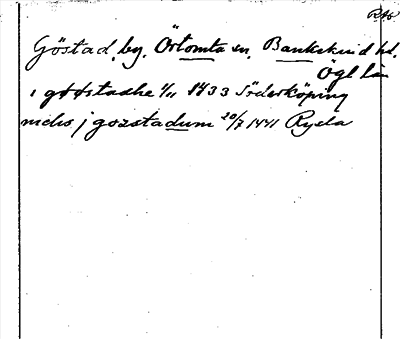 RAÖ
Göstad, by, Örtomta sn, Bankekind hd,
Ögl län
i gøøstadhe 4/11 1433 Söderköping
nichis j gozstadum 20/7 1441 Ryda